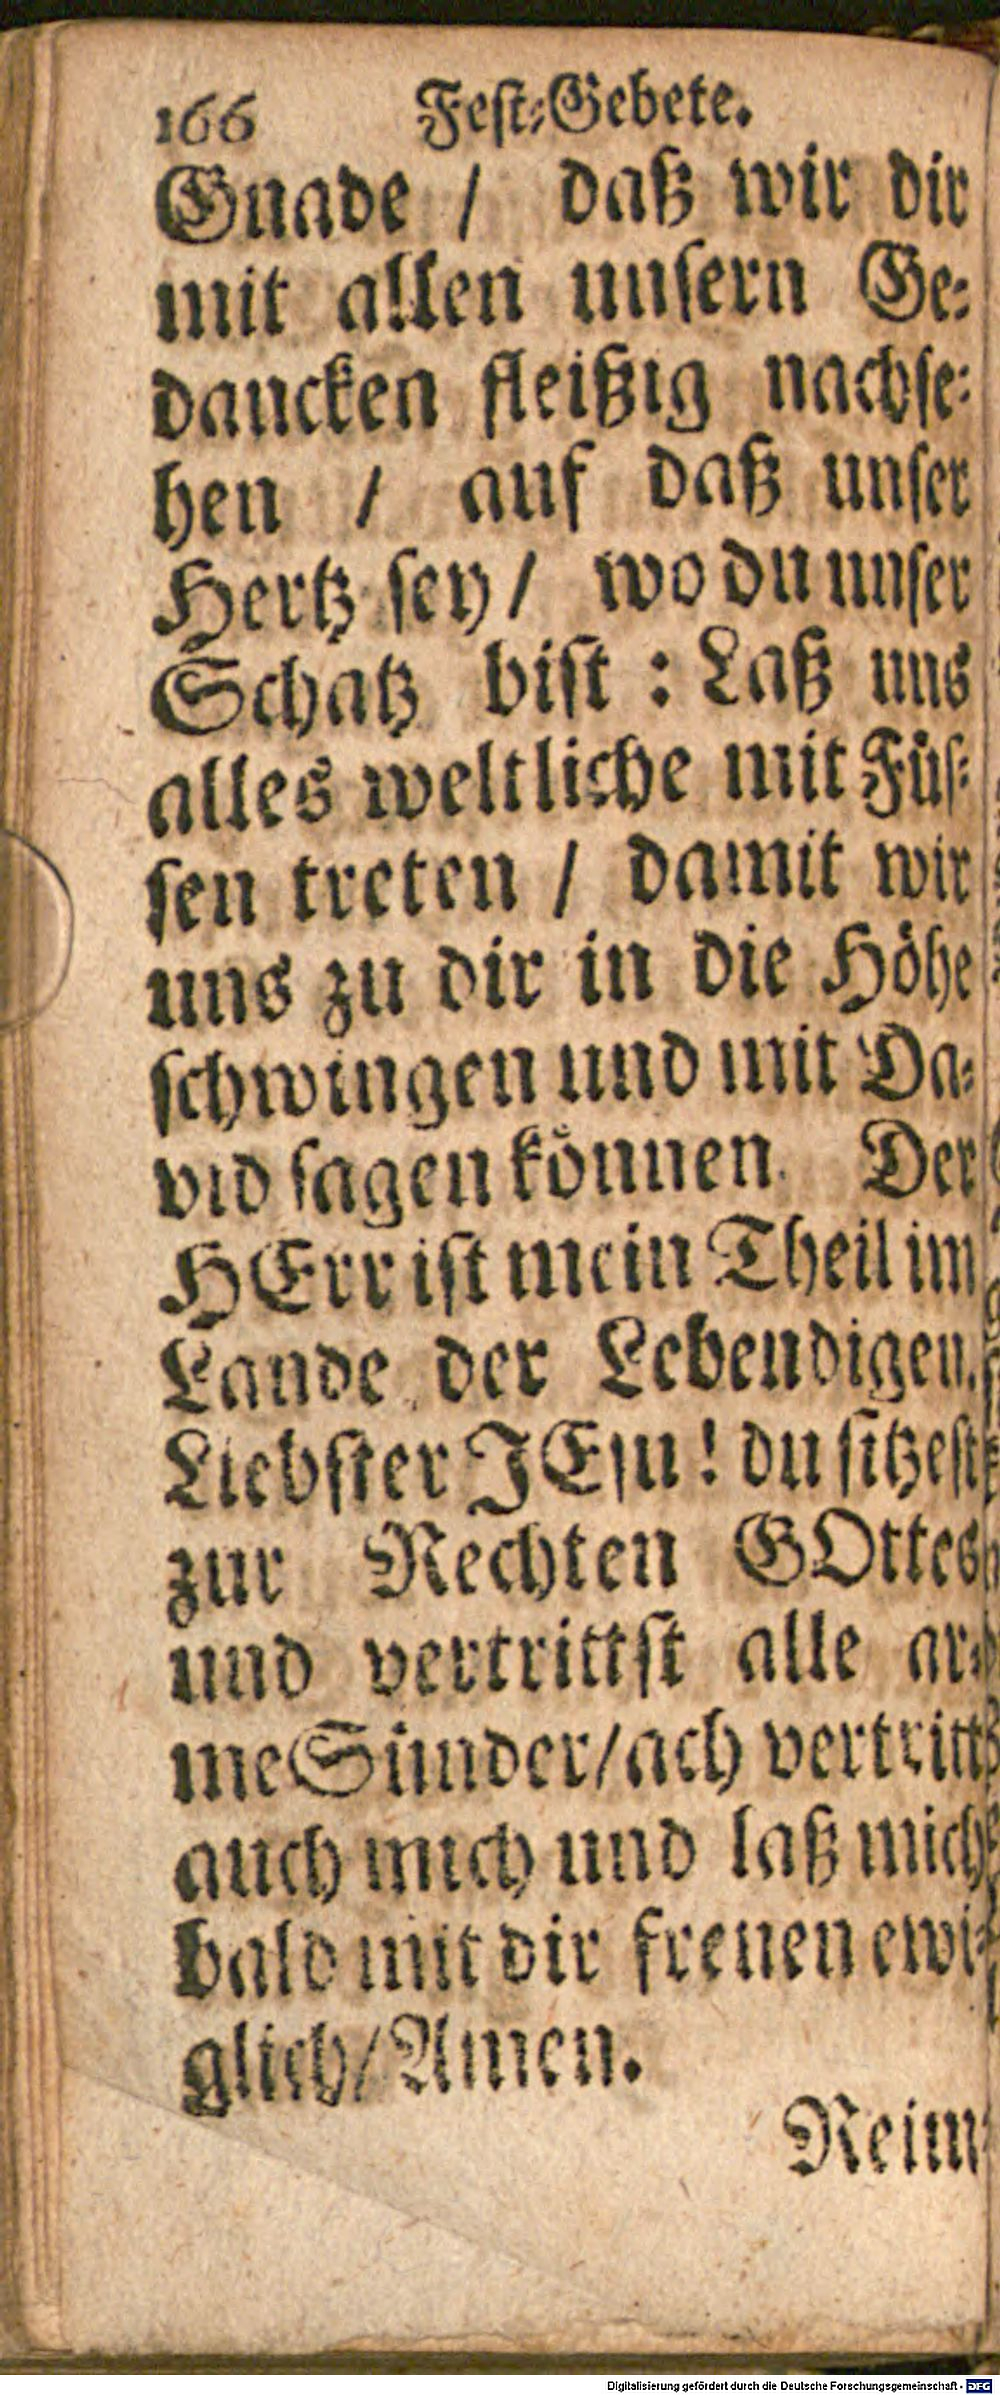 166 Feſt-Gebete.
Gnade / daß wir dir
mit allen unſern Ge-
dancken fleißig nachſe-
hen / auf daß unſer
Hertz ſey / wo du unſer
Schatz biſt : Laß uns
alles weltliche mit Füſ-
ſen treten / damit wir
uns zu dir in die Höhe
ſchwingen und mit Da-
vid ſagen können. Der
HErr iſt mein Theil im
Lande der Lebendigen.
Liebſter JEſu! du ſitzeſt
zur Rechten GOttes
und vertrittſt alle ar-
me Sünder/ach vertritt
auch mich und laß mich
bald mit dir freuen ewi-
glich/Amen.
Reim-
Digitalisierung gefördert durch die Deutsche Forschungsgemeinschaft - DFG